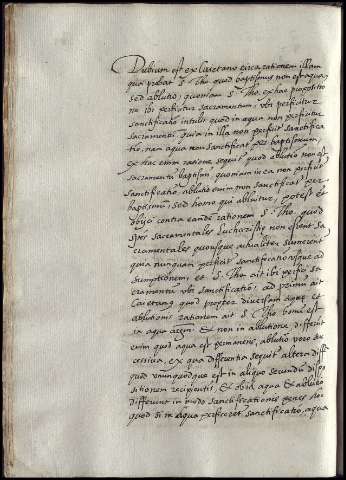 Dubium est ex Caietano circa rationem illam
qua probat S. Tho. quod baptismus non est aqua,
sed ablutio, quoniam S. Tho. ex hac propositio
ne ibi perficitur sacramentum, ubi perficitur
sanctificatio intulit quod in aqua non perficitur
sacramentũ, quia in illa non perficitur sanctifica
tio, nam aqua non sanctificat per baptismum,
ex hac enim ratione sequitur quod ablutio non est
sacramentũ baptismi, quoniam in ea non perficitur
sanctificatio, ablutio enim non sanctificat per
baptismũ, sed homo qui abluitur, potest et
obijci contra eandẽ rationem S. Tho. quod
spẽs sacramentales Eucharistiæ non essent sa
cramentales quousque actualiter sumerent
quia nunquam perficit sanctificatio usque ad
sumptionem, et S. Tho. ait ibi perfici sa
cramentum ubi sanctificatio, ad primum ait
Caietanus quod propter diversam aquæ et
ablutionis rationem ait S. Tho. bona est
ra aqua & non in ablutione, differunt
enim quod aqua est permanens, ablutio vero su
cessiva, ex qua differentia sequitur altera diff
quod unumquodque est in aliquo secundũ dispo
sitionem recipientis, & ideo aqua & ablutio
differunt in modo sanctificationis penes hoc
quod si in aqua perficeret sanctificatio, aqua